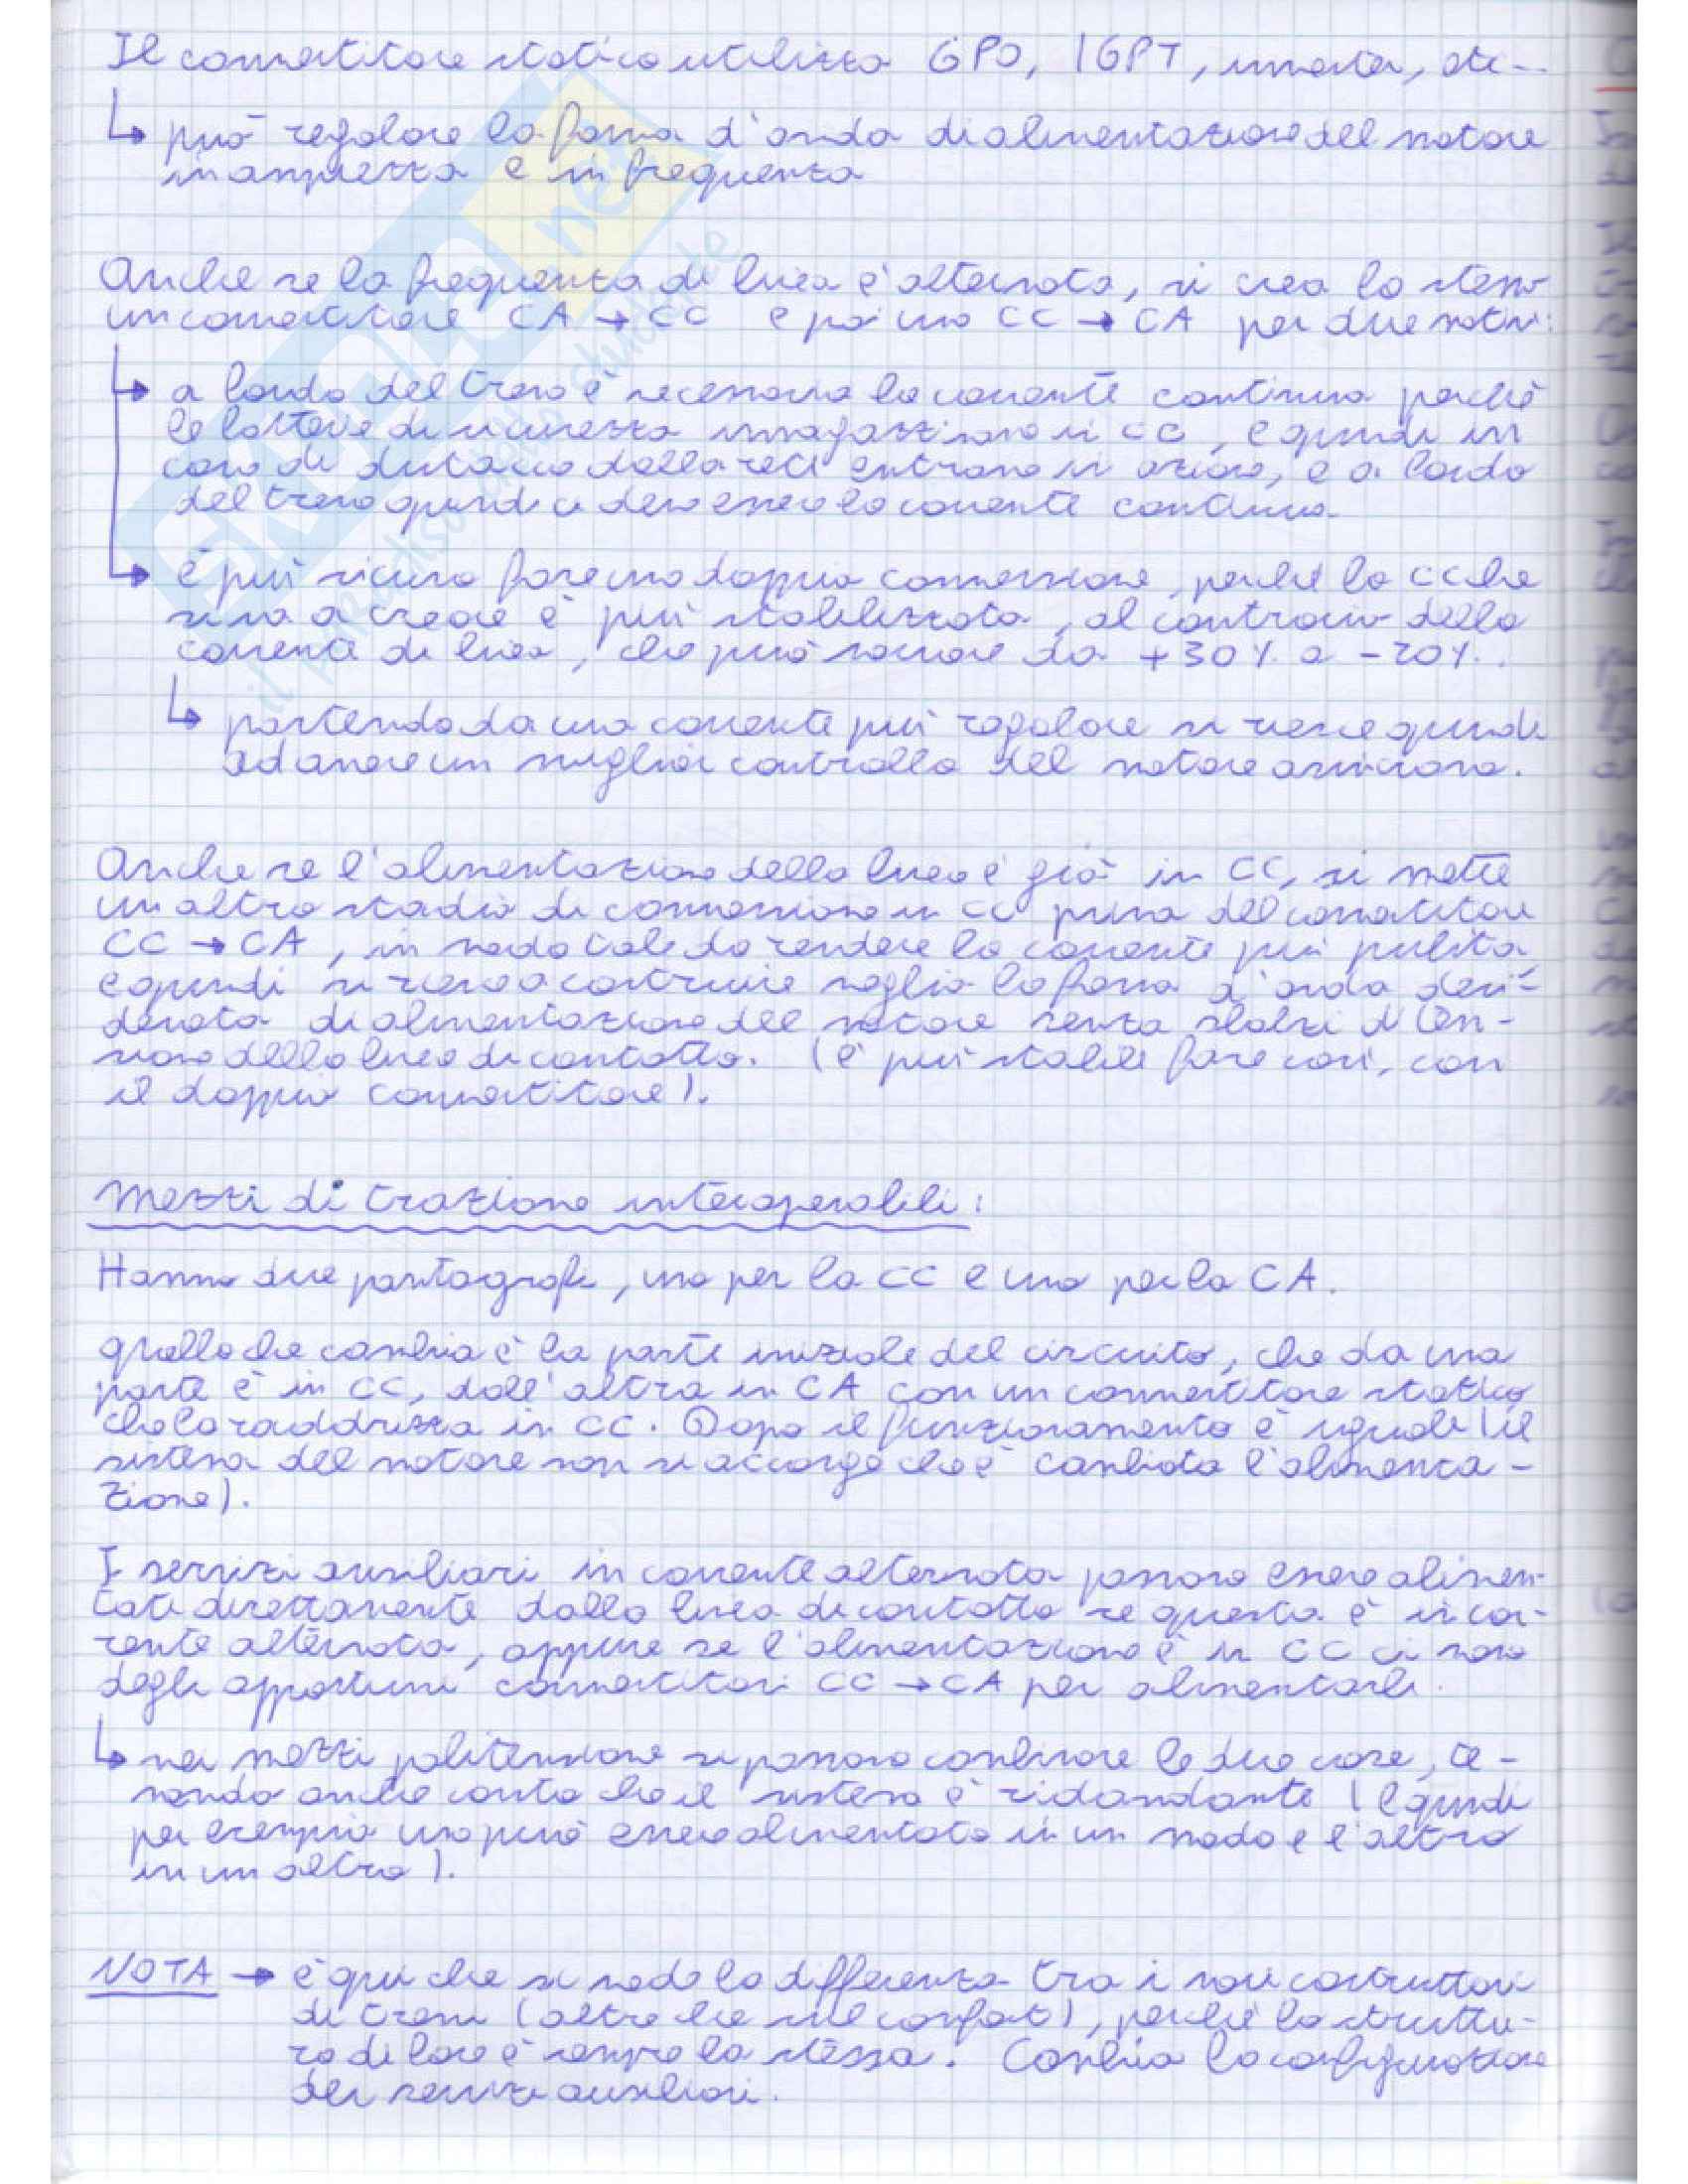 Il convertitore statico utilizza GPO, IGPT, inverter, etc..
↳ può regolare la forma d'onda di alimentazione del motore
in ampiezza e in frequenza
Anche se la frequenza di linea è alternata, si crea lo stesso
un convertitore CA → CC e poi uno CC → CA per due motivi:
↳ a bordo del treno è necessaria la corrente continua perché
le batterie di sicurezza immagazzinano in CC, e quindi in
caso di distacco dalla rete entrano in azione, e a bordo
del treno quindi ci deve essere la corrente continua.
↳ è più sicuro fare una doppia conversione, perché la CC che
si va a creare è più stabilizzata, al contrario della
corrente di linea, che può variare da +30% a -20%.
↳ partendo da una corrente più regolare si riesce quindi
ad avere un miglior controllo del motore asincrono.
Anche se l'alimentazione della linea è già in CC, si mette
un altro stadio di conversione in CC prima del convertitore
CC → CA, in modo tale da rendere la corrente più pulita
e quindi si riesce a costruire meglio la forma d'onda desi-
derata di alimentazione del motore senza sbalzi di ten-
sione della linea di contatto. (è più stabile fare così, con
il doppio convertitore).
Mezzi di trazione interoperabili:
Hanno due pantografi, uno per la CC e uno per la CA.
quello che cambia è la parte iniziale del circuito, che da una
parte è in CC, dall'altra in CA con un convertitore statico
che la raddrizza in CC. Dopo il funzionamento è uguale (il
sistema del motore non si accorge che è cambiata l'alimenta-
zione).
I servizi ausiliari in corrente alternata possono essere alimen-
tati direttamente dalla linea di contatto se questa è in cor-
rente alternata, oppure se l'alimentazione è in CC ci sono
degli opportuni convertitori CC → CA per alimentarli.
↳ nei mezzi politensione si possono combinare le due cose, te-
nendo anche conto che il sistema è ridondante (e quindi
per esempio uno può essere alimentato in un modo e l'altro
in un altro).
NOTA → è qui che si vede la differenza tra i vari costruttori
di treni (oltre che sul confort), perché la struttu-
ra di base è sempre la stessa. Cambia la configurazione
dei servizi ausiliari.